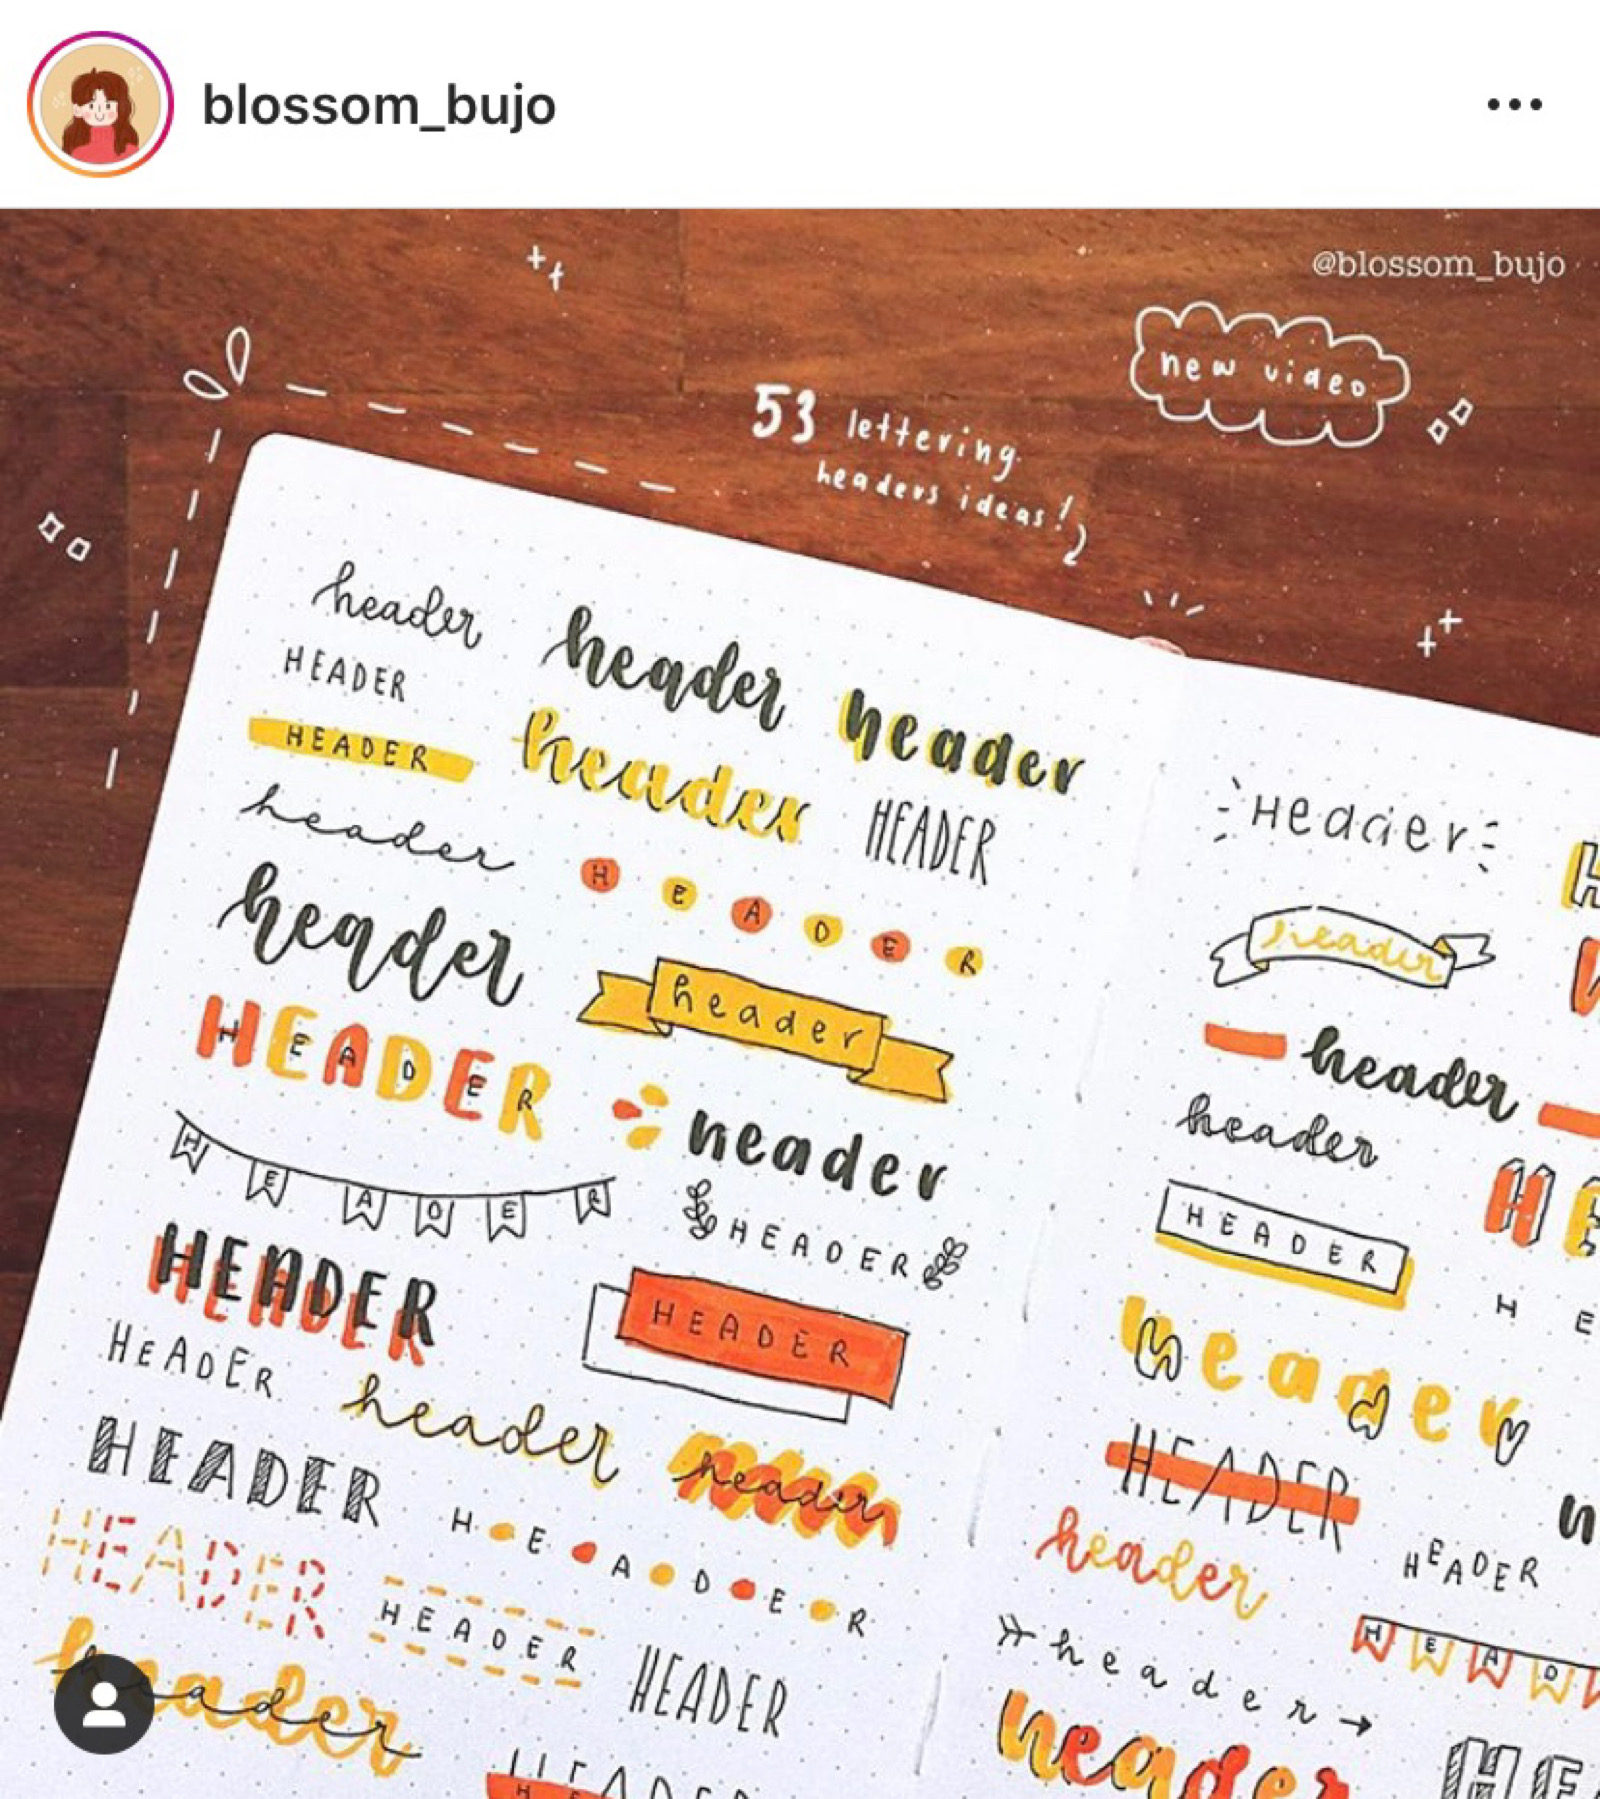 blossom_bujo
@blossom_bujo
new video
53 lettering
headers ideas!
header
HEADER
HEADER
header
header
HEADER
HEADER
header
header
header
HEADER
HEADER
header
header
HEADER
HEADER
HEADER
HEADER
HEADER
header
header
HEADER
HEADER
HEADER
HEADER
HEADER
header
HEADER
Header
header
header
header
HEADER
header
HEADER
header
HEADER
header
header